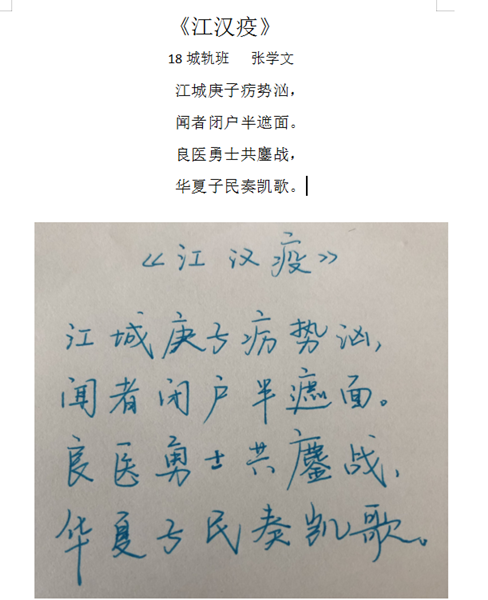 《江汉疫》
18城轨班 张学文
江城庚子疠势汹，
闻者闭户半遮面。
良医勇士共鏖战，
华夏子民奏凯歌。
《江汉疫》
江城庚子疠势汹，
闻者闭户半遮面。
良医勇士共鏖战，
华夏子民奏凯歌。